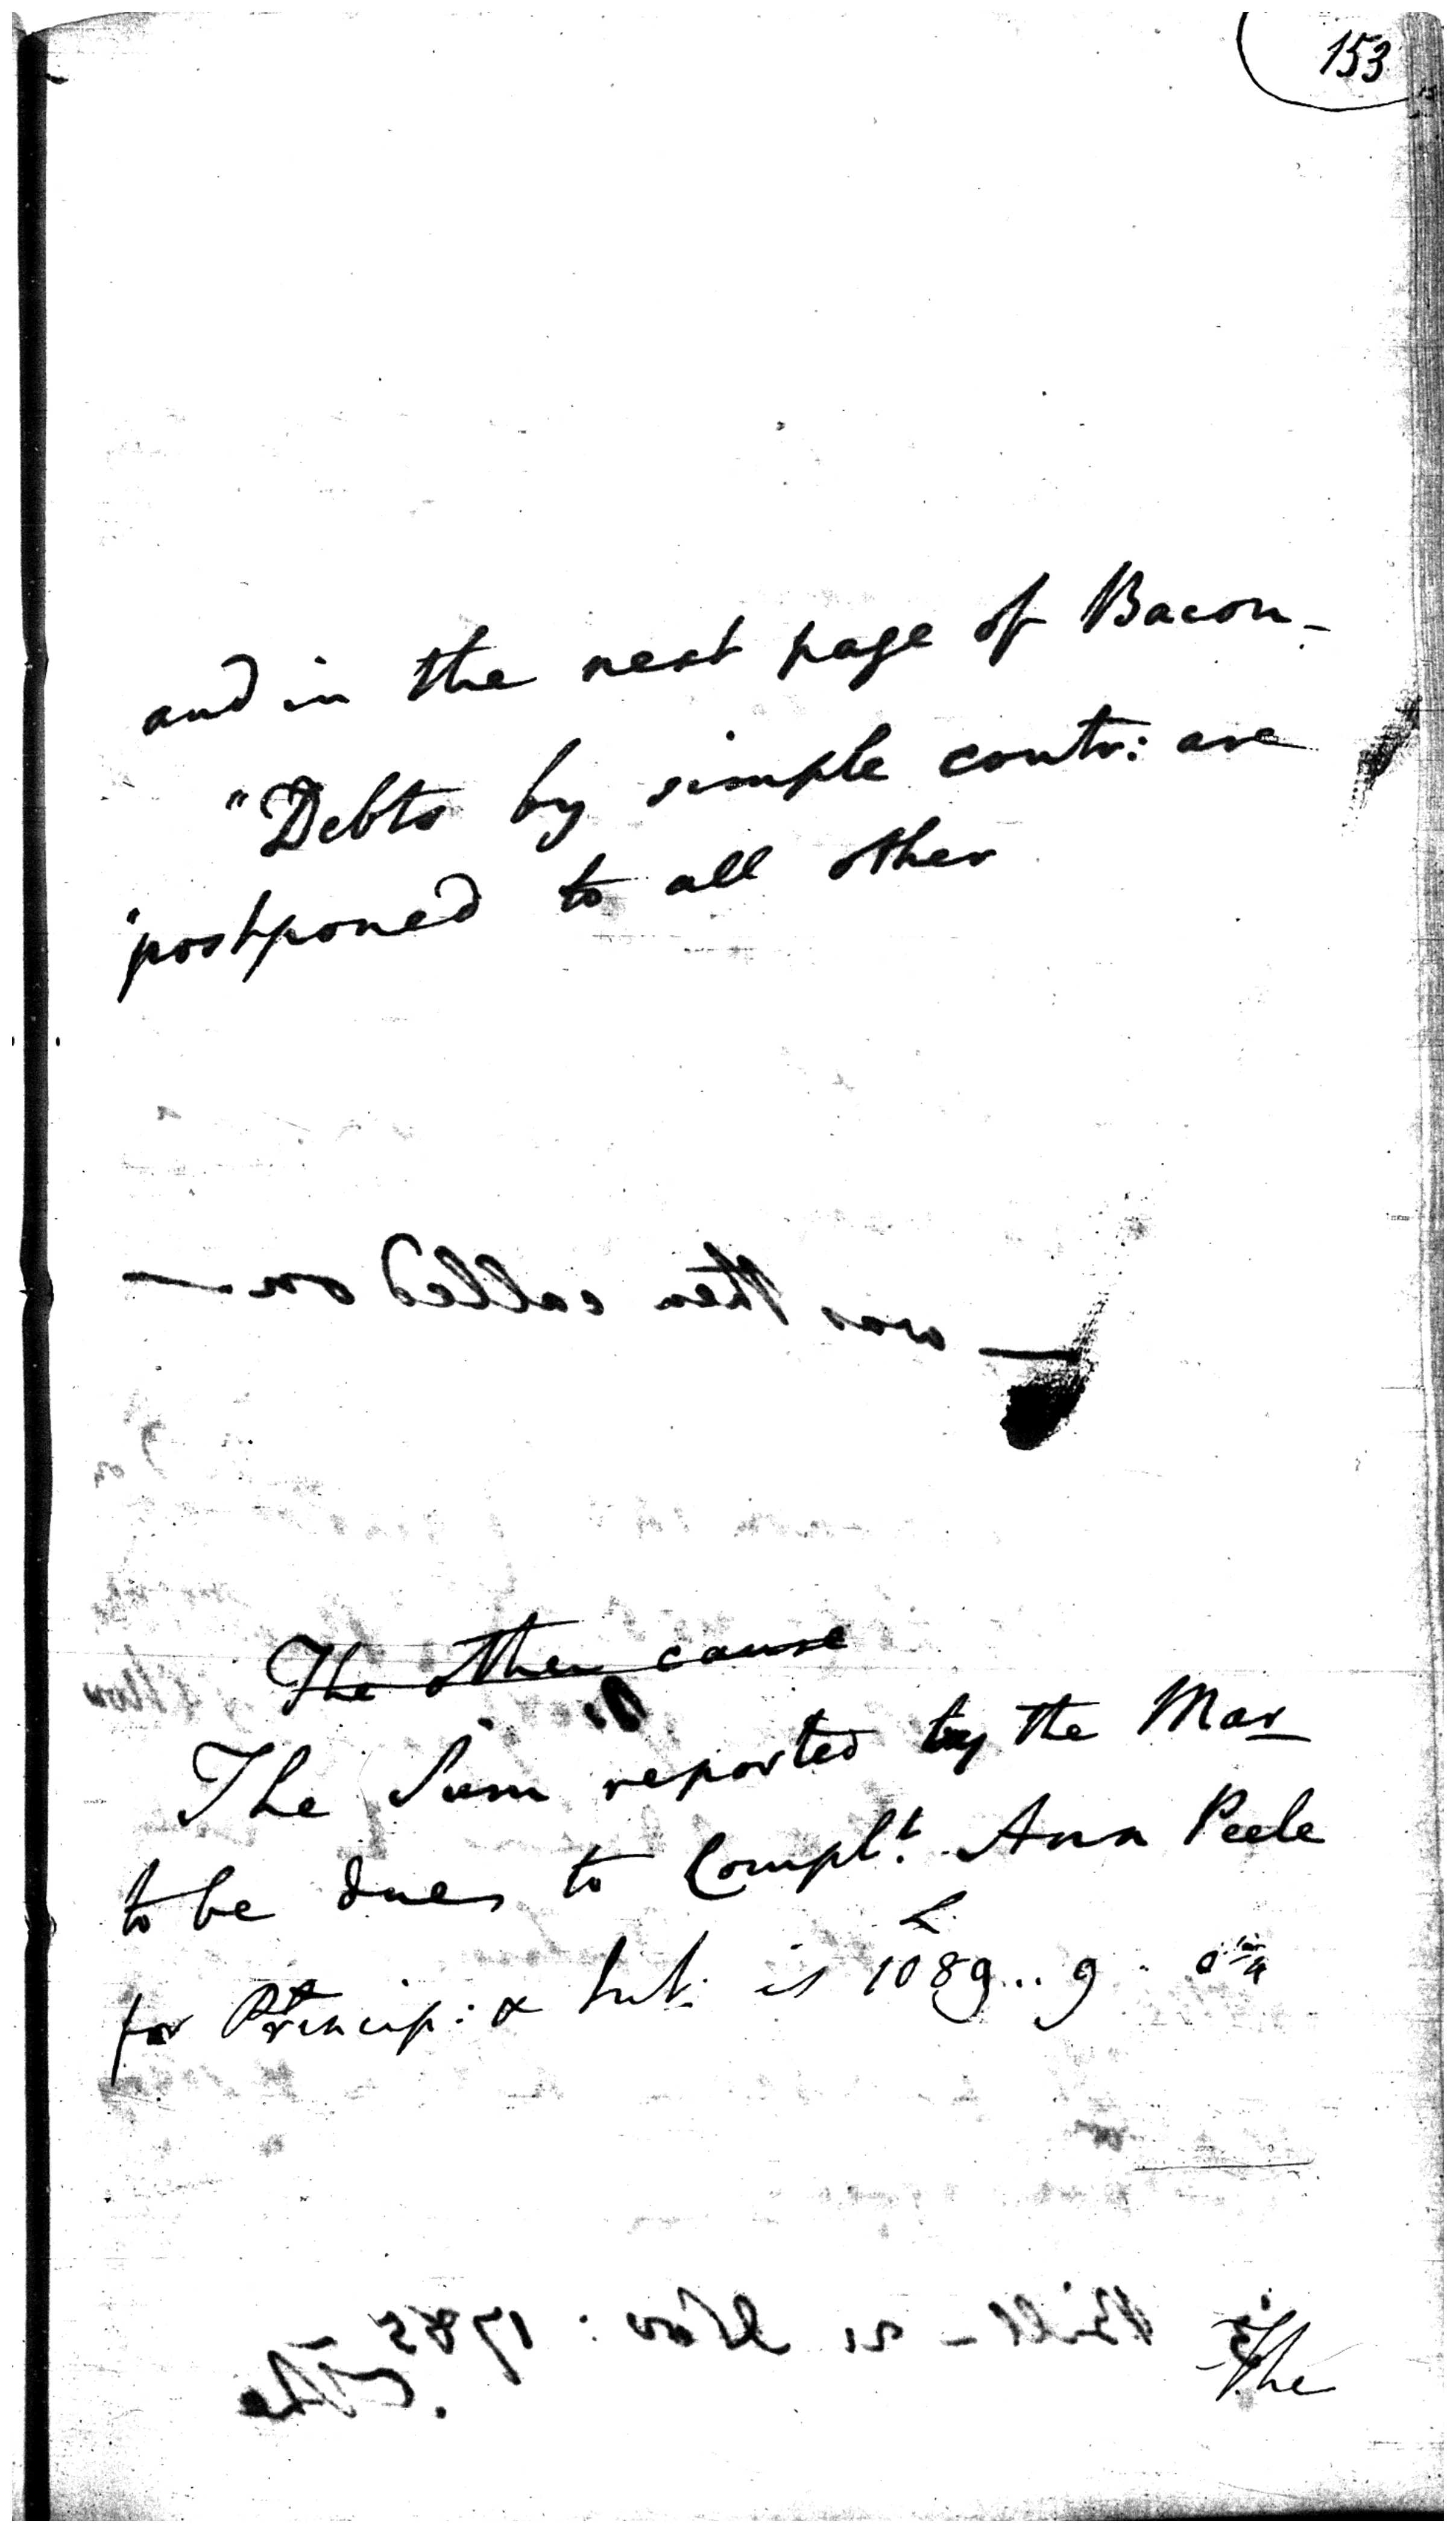 153
and in the next page of Bacon -
"Debts by simple contr: are
"postponed to all other
— was then called on —
The other cause
The Sum reported by the Mar
to be due to Complt. Ann Peele
for Princip: & Int: is £ 1089 .. 9 .
Bill - 21 Nov: 1785
The
The